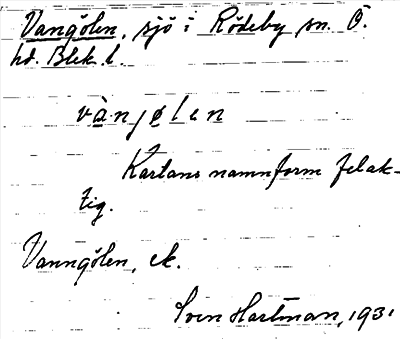 Vangölen, sjö i Rödeby sn. Ö.
hd. Blek. l.
vàn/ølen
Kartans namnform felak-
tig.
Vanngölen, ek.
Sven Hartman, 1931